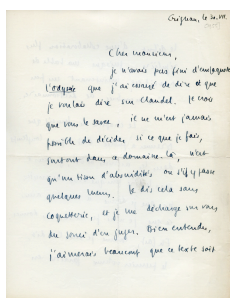 Grignan, le 20. VII.
Cher monsieur,
je n'avais pas fini d'empaqueter
l'odyssée que j'ai essayé de dire et que
je voulais dire sur Claudel. Je crois
que vous le savez, je ne m'est jamais
possible de décider si ce que je fais,
surtout dans ce domaine-là, n'est
qu'un tissu d'absurdités ou s'il y passe
quelque sens. Je dis cela sans
coquetterie, et je me décharge sur vous
du souci d'en juger. Bien entendu,
j'aimerais beaucoup que ce texte soit